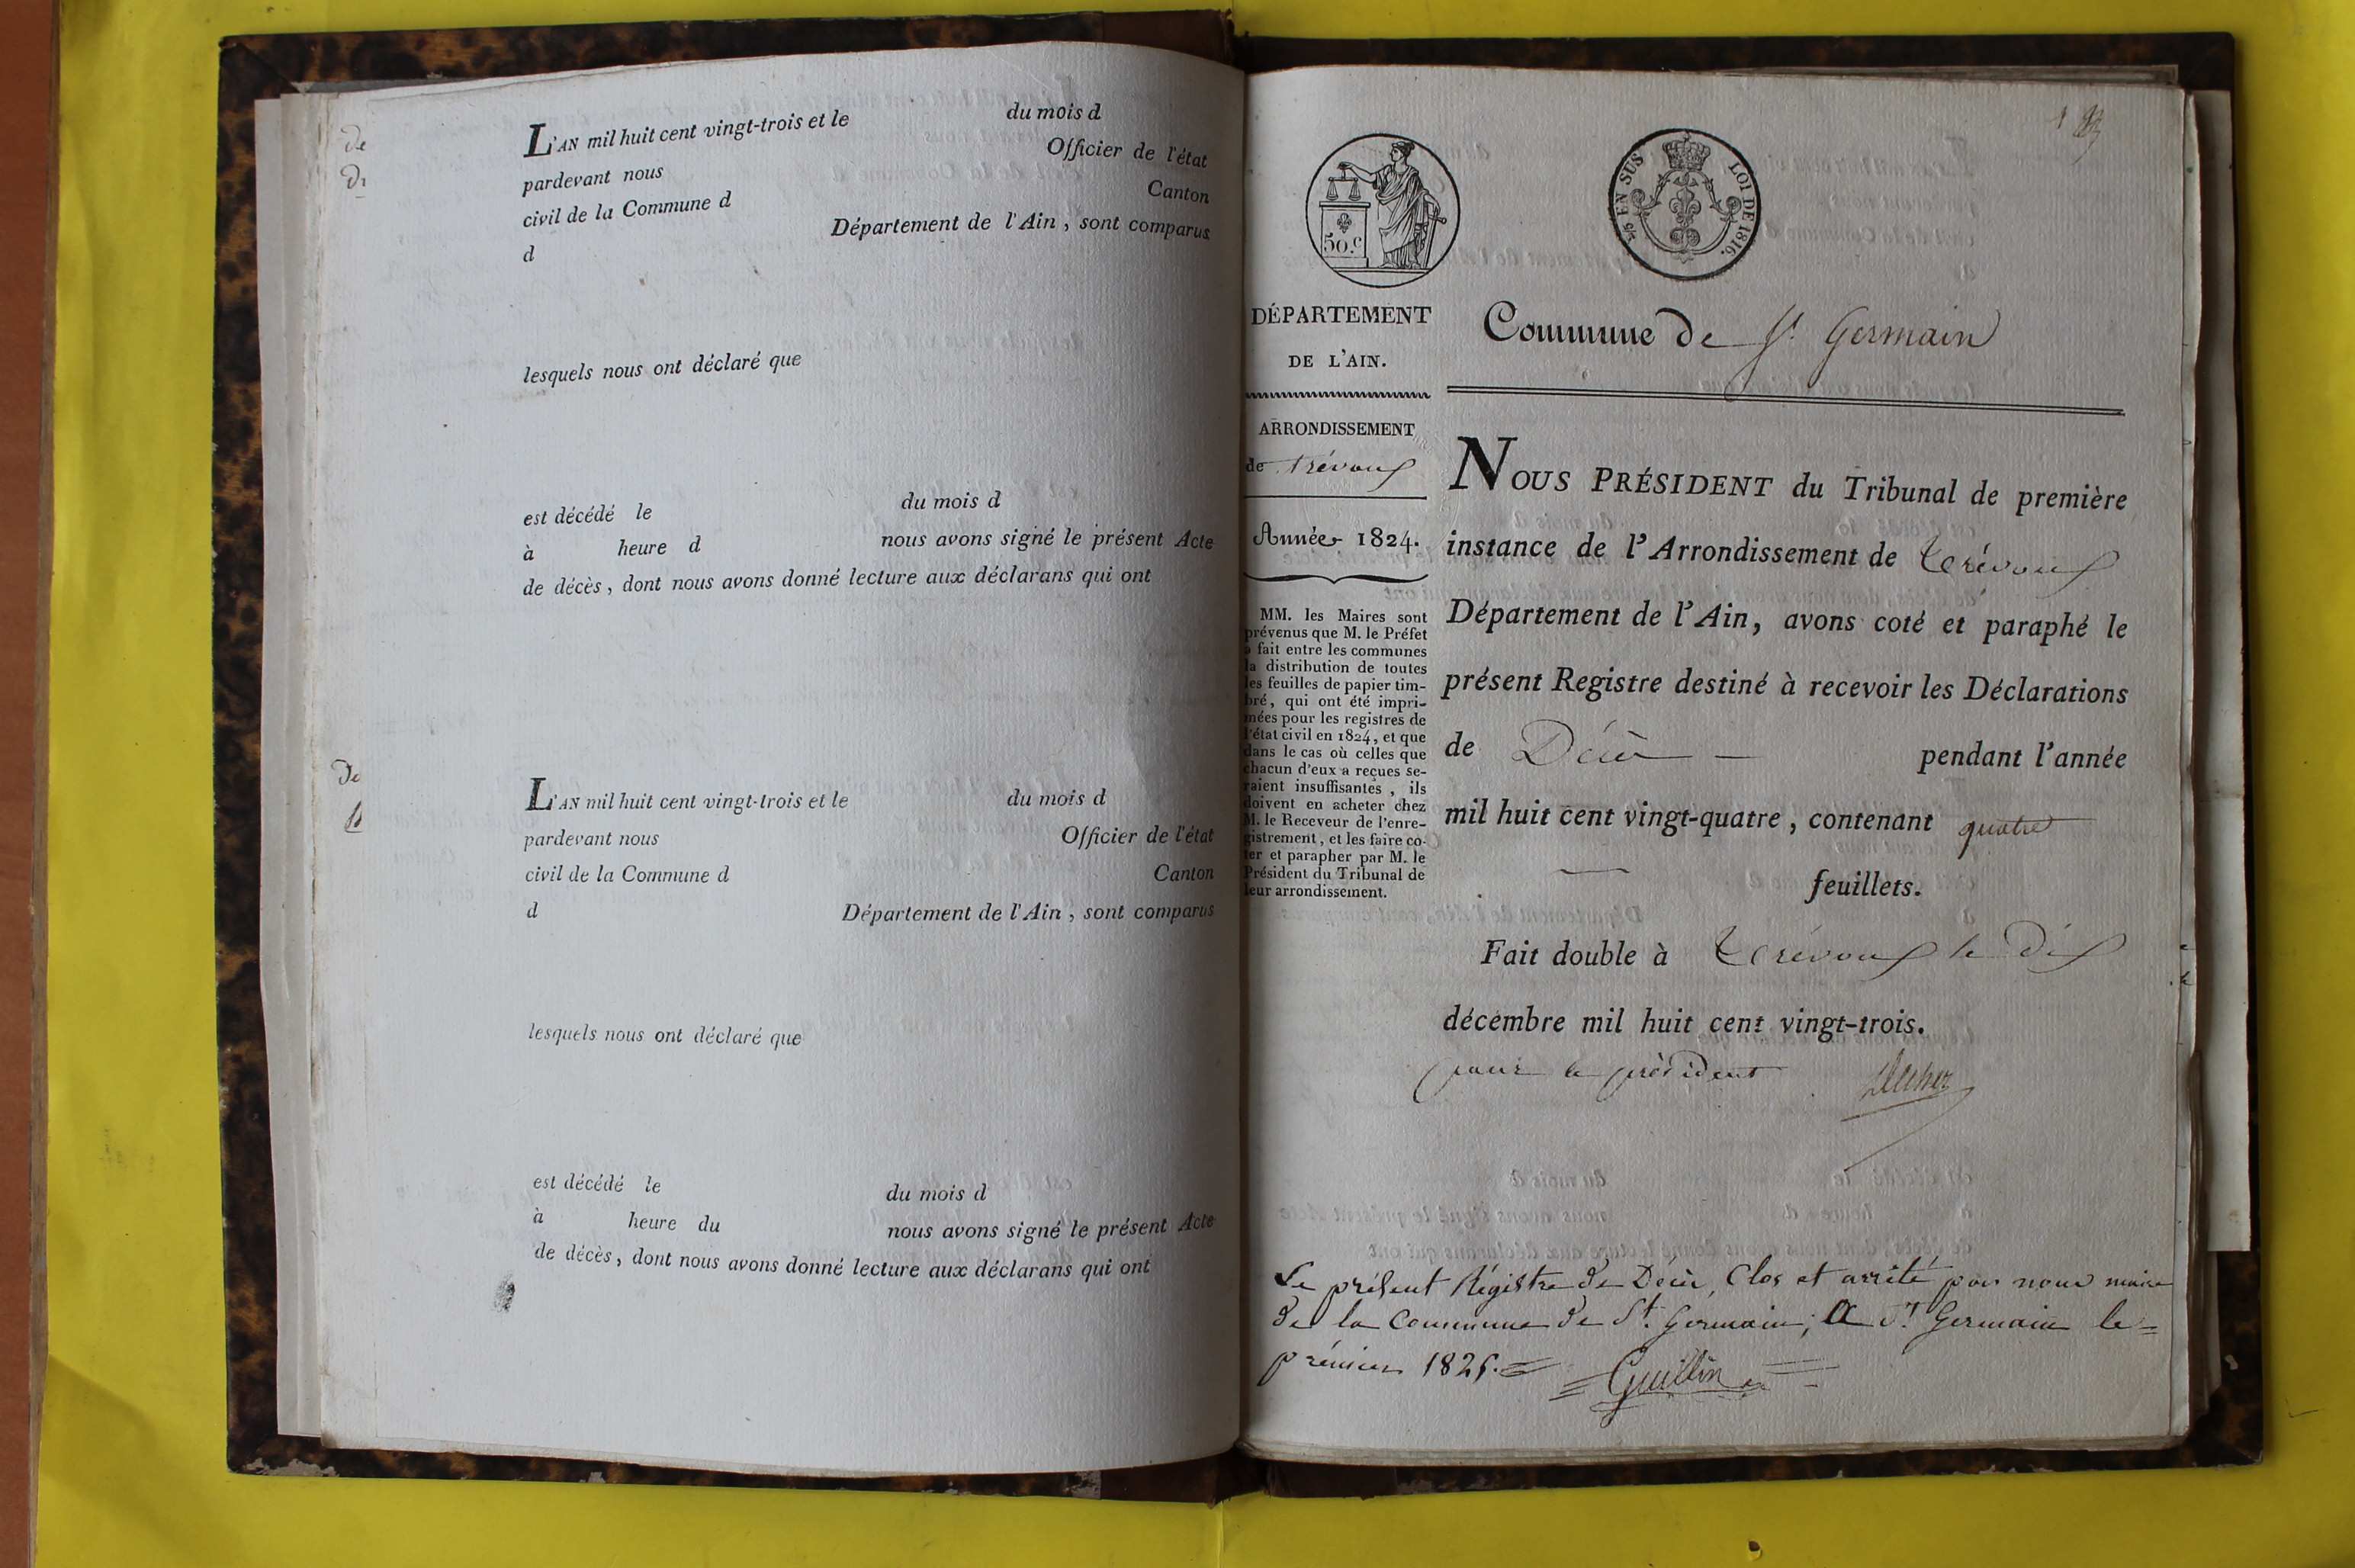 L'AN mil huit cent vingt-trois et le du mois d
pardevant nous Officier de l'état
civil de la Commune d Canton
d Département de l'Ain, sont comparus
lesquels nous ont déclaré que
est décédé le du mois d
à heure d nous avons signé le présent Acte
de décès, dont nous avons donné lecture aux déclarans qui ont
L'AN mil huit cent vingt-trois et le du mois d
pardevant nous Officier de l'état
civil de la Commune d Canton
d Département de l'Ain, sont comparus
lesquels nous ont déclaré que
est décédé le du mois d
à heure du nous avons signé le présent Acte
de décès, dont nous avons donné lecture aux déclarans qui ont
50.c
EN SUS LOI DE 1816.
DÉPARTEMENT
DE L'AIN.
ARRONDISSEMENT
de trévoux
Année 1824.
MM. les Maires sont
prévenus que M. le Préfet
a fait entre les communes
la distribution de toutes
les feuilles de papier tim-
bré, qui ont été impri-
mées pour les registres de
l'état civil en 1824, et que
dans le cas où celles que
chacun d'eux a reçues se-
raient insuffisantes, ils
doivent en acheter chez
M. le Receveur de l'enre-
gistrement, et les faire co-
ter et parapher par M. le
Président du Tribunal de
leur arrondissement.
Commune de St. Germain
NOUS PRÉSIDENT du Tribunal de première
instance de l'Arrondissement de trévoux
Département de l'Ain, avons coté et paraphé le
présent Registre destiné à recevoir les Déclarations
de Décès pendant l'année
mil huit cent vingt-quatre, contenant quatre
feuillets.
Fait double à trévoux le dix
décembre mil huit cent vingt-trois.
pour le président
Le présent Régistre de Décès, Clos et arrêté par nous maire
de la Commune de St. Germain; A St. Germain le=
prémier 1825.=
Guillin